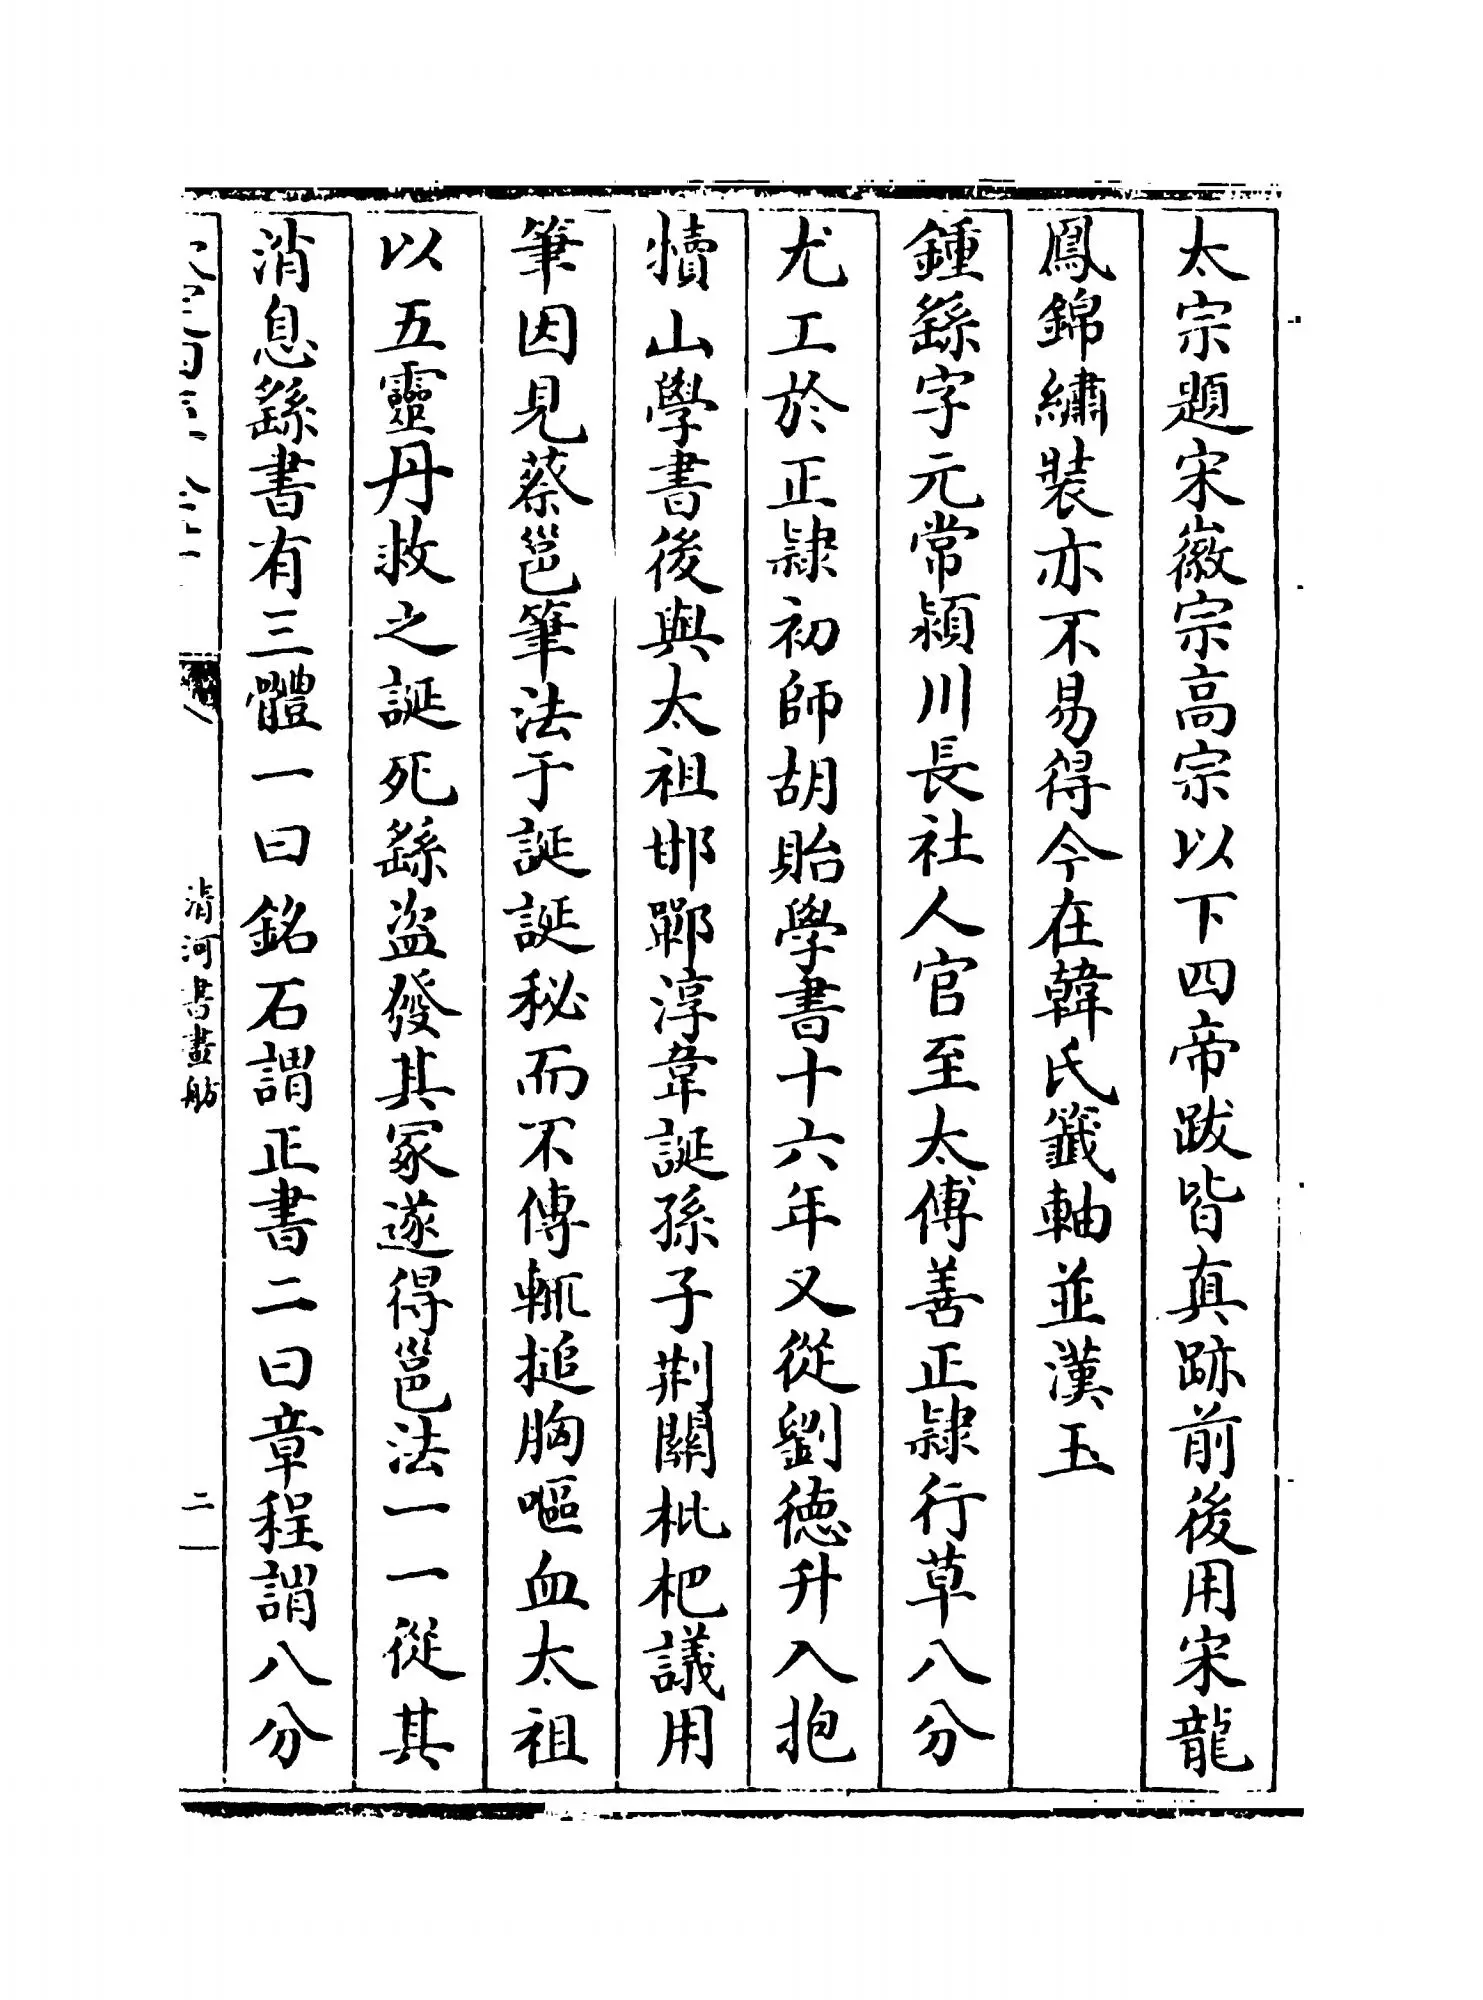 太宗題宋徽宗高宗以下四帝跋皆真跡前後用宋龍
鳳錦繡裝亦不易得今在韓氏籤軸並漢玉
鍾繇字元常潁川長社人官至太傅善正隸行草八分
尤工於正隸初師胡貽學書十六年又從劉德升入抱
犢山學書後與太祖邯鄲淳韋誕孫子荆關枇杷議用
筆因見蔡邕筆法于誕誕秘而不傳輒搥胸嘔血太祖
以五靈丹救之誕死繇盜發其冢遂得邕法一一從其
消息繇書有三體一曰銘石謂正書二曰章程謂八分
清河書畫舫
二